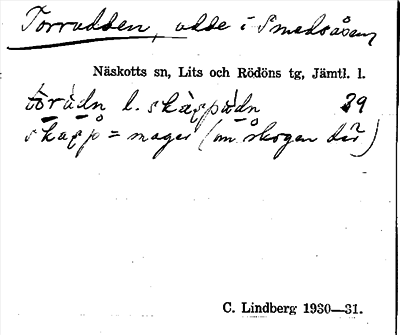 Torrudden, udde i Smedsåsen
Näskotts sn, Lits och Rödöns tg, Jämtl. l.
l. 39
skapp = mager (om skogen där)
C. Lindberg 1930—31.